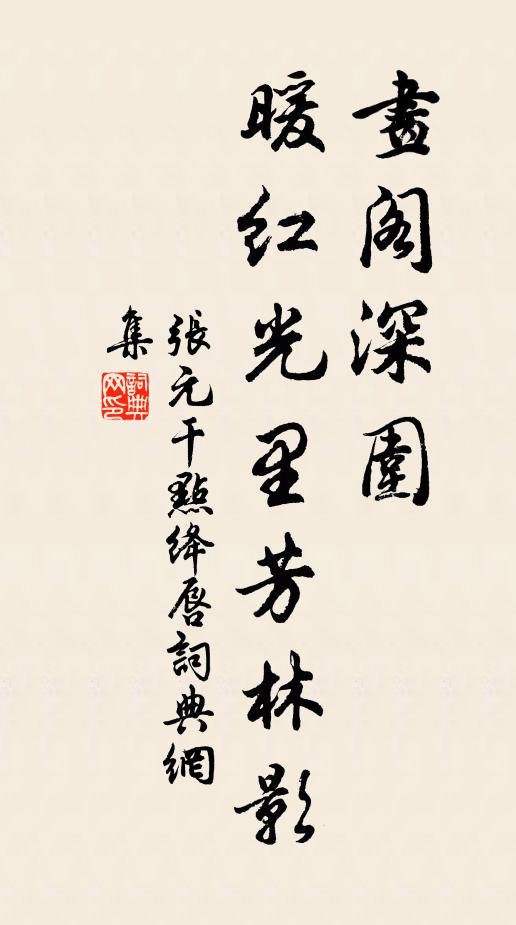 畫阁深圍
暖红光里芳林影
張元干點絳唇詞典網
集
詞典
网印